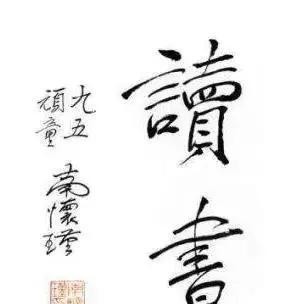 讀書
九五
頑童
南懷瑾